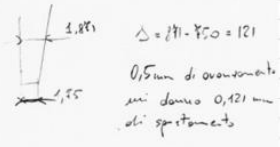 1,871
Δ = 871 - 750 = 121
0,5 mm di avanzamento
mi danno 0,121 mm
di spostamento
1,75